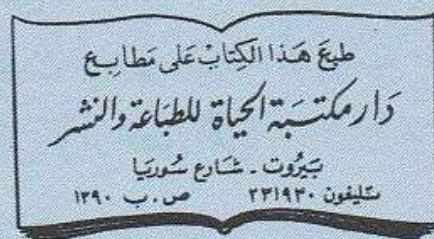 طبع هَذا الكِتابْ عَلى مَطابِع
دَار مكتبَة الحيَاة للطبَاعَة وَالنشر
بَيرُوت - شَارع سُوريَا
تليفون ٢٣١٩٣٠ ص . ب ١٣٩٠